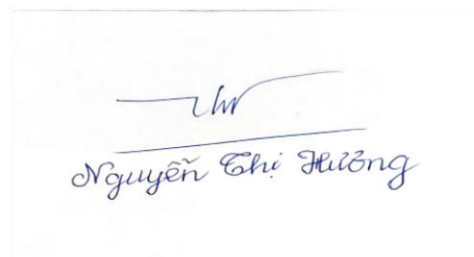 Nguyễn Thị Hương